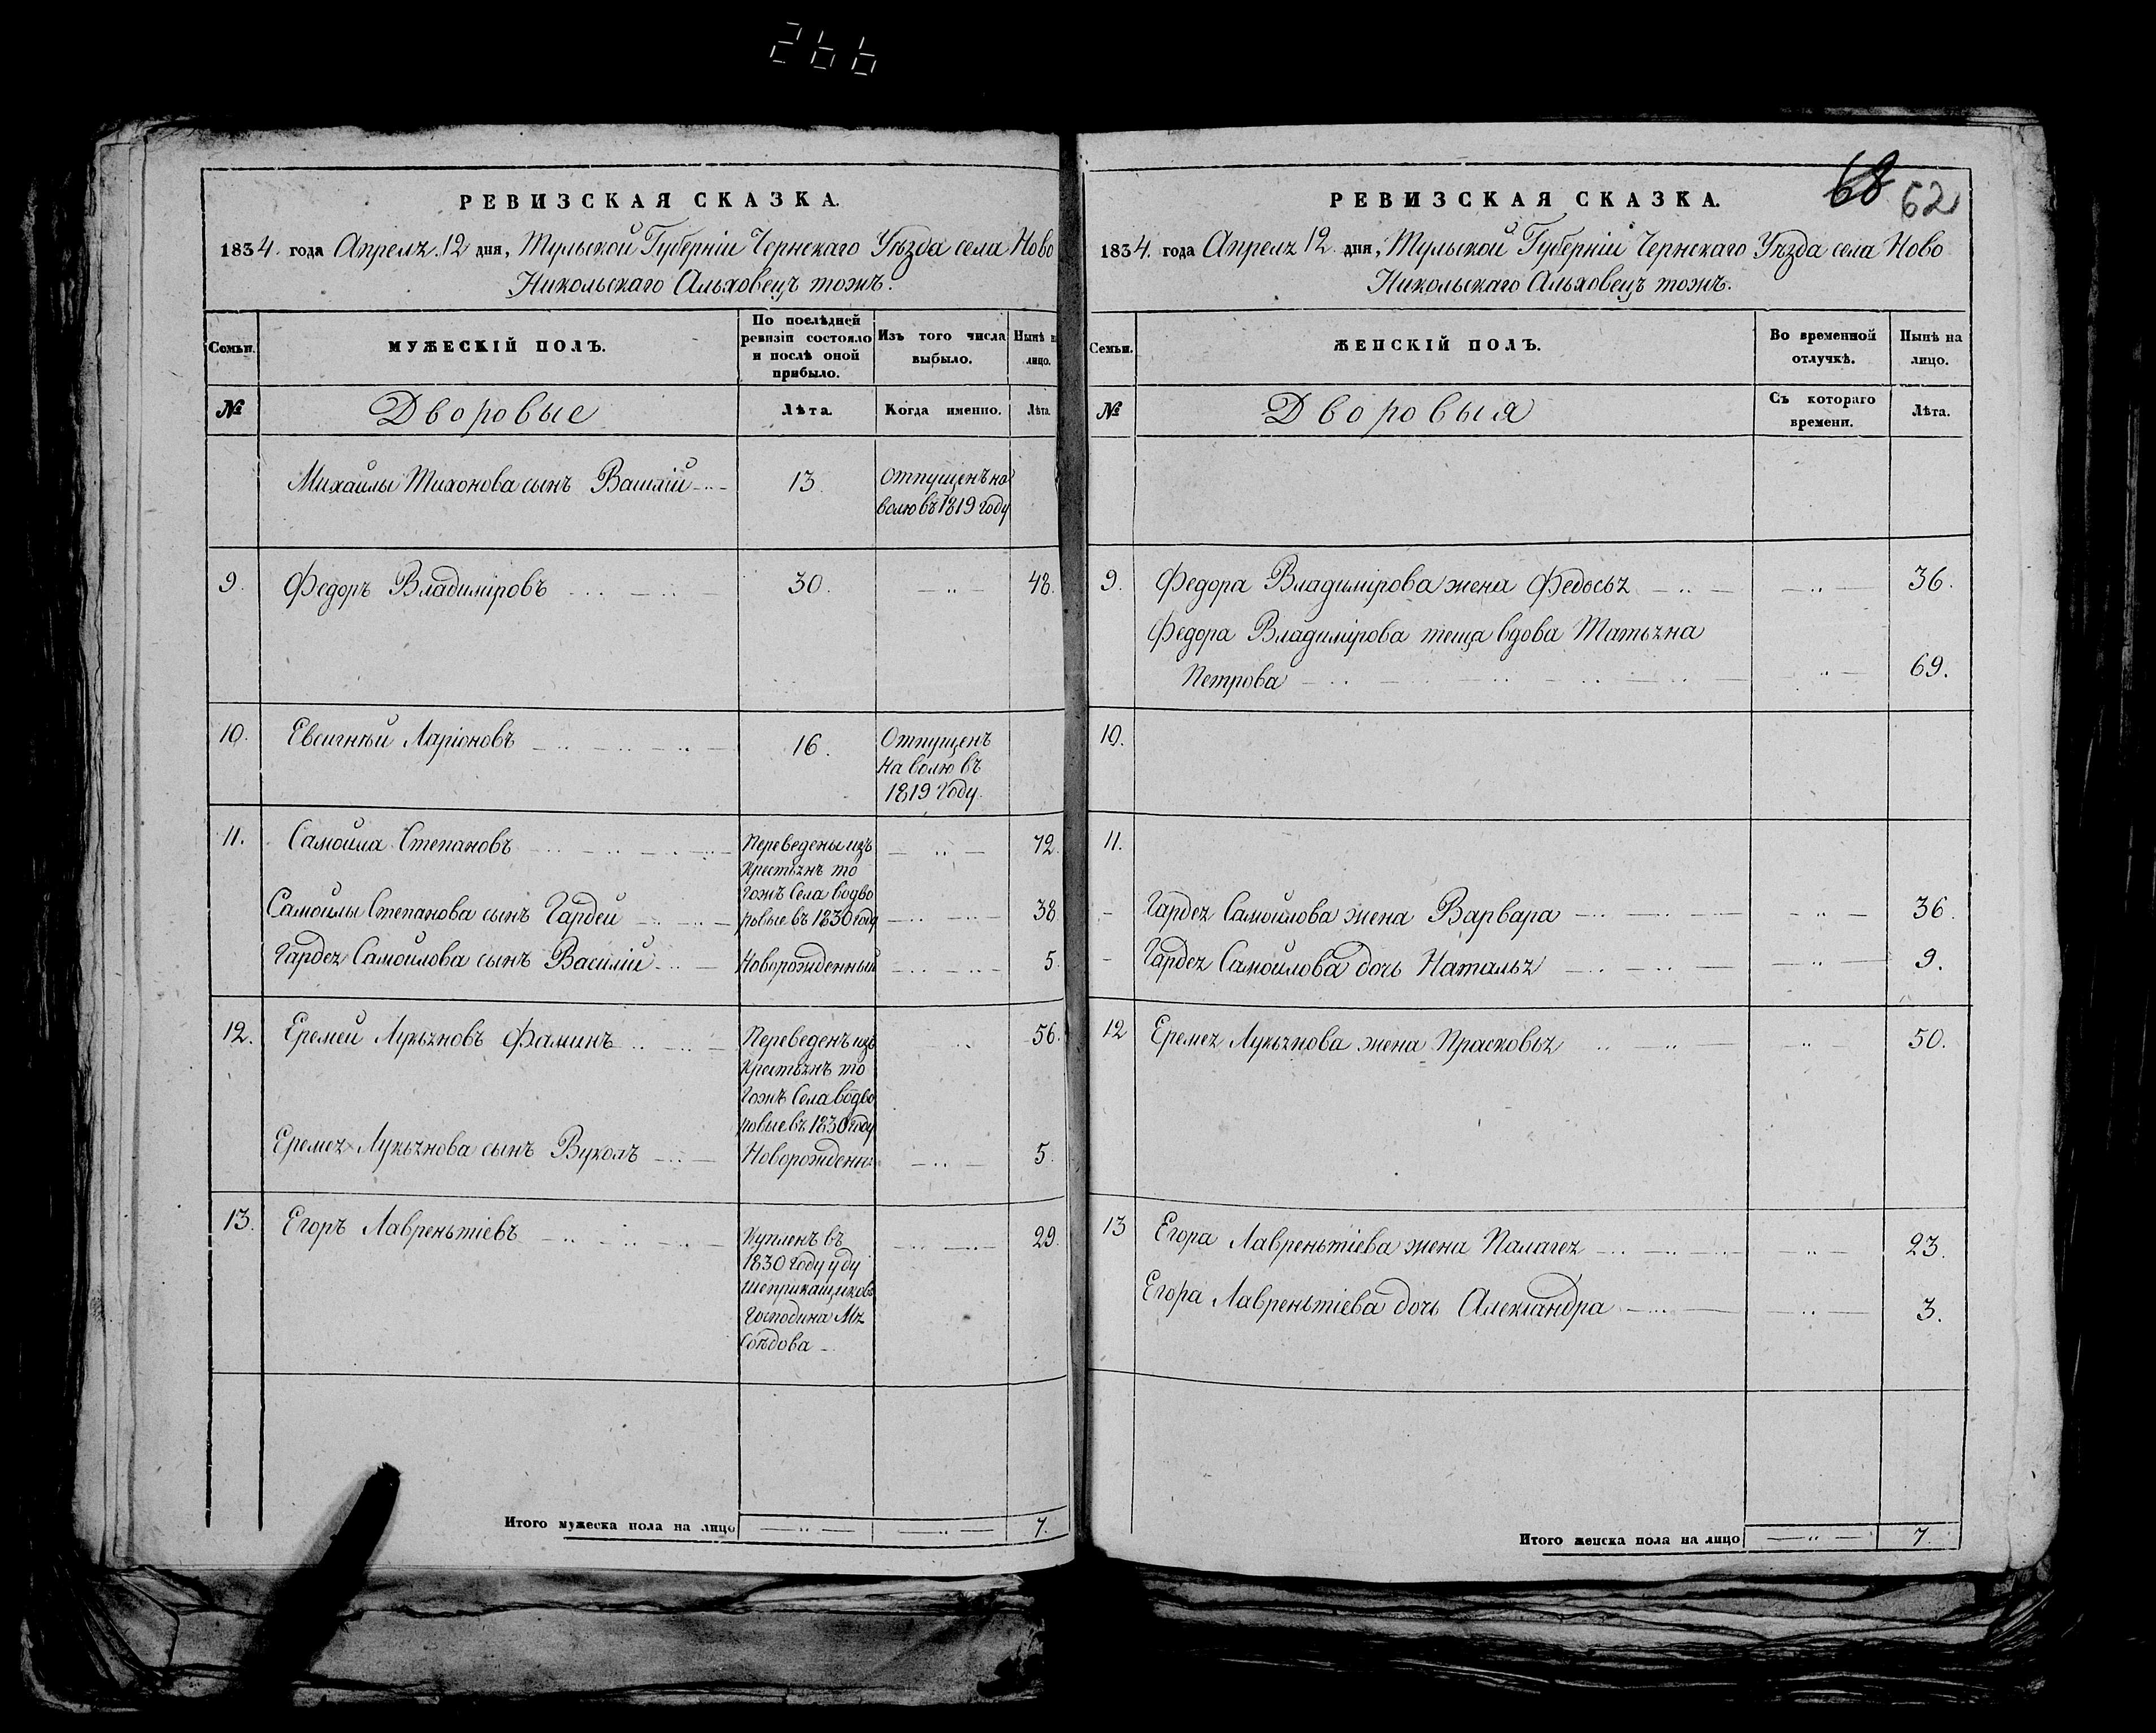 266
РЕВИЗСКАЯ СКАЗКА.
1834. года Апреля. 12 дня, Тульской Губерніи Чернскаго Уѣзда села Ново
Никольскаго Альховецъ тожъ.
Семьи.
МУЖЕСКІЙ ПОЛЪ.
По послѣдней
ревизіи состояло
и послѣ оной
прибыло.
Изъ того числа
выбыло.
Нынѣ н
лицо.
№
Дворовые
Лѣта.
Когда именно.
Лѣта.
Михайлы Тихонова сынъ Василій
13.
Отпущенъ на
волю въ 1819 году
9.
Федоръ Владиміровъ
30.
48.
10.
Евсигнѣй Ларіоновъ
16.
Отпущенъ
на волю въ
1819 году.
11.
Самойла Степановъ
Переведены изъ
крестьянъ то
гожъ села водво
ровые въ 1830 году
72.
Самойлы Степанова сынъ Гардей
38
Гардея Самойлова сынъ Василій
Новорожденный
5
12.
Еремей Лукьяновъ Фаминъ
Переведенъ изъ
крестьянъ то
гожъ села водво
ровые въ 1830 году
56.
Еремея Лукьянова сынъ Вуколъ
Новорожденн:
5
13.
Егоръ Лавреньтіевъ
Купленъ въ
1830 году у ду
шеприкащиковъ
Господина Мя
соѣдова
29.
Итого мужеска пола на лицо
7.
68 62
РЕВИЗСКАЯ СКАЗКА.
1834. года Апреля 12 дня, Тульской Губерніи Чернскаго Уѣзда села Ново
Никольскаго Альховецъ тожъ.
Семьи.
ЖЕНСКІЙ ПОЛЪ.
Во временной
отлучкѣ.
Нынѣ на
лицо.
№
Дворовыя
Съ котораго
времени.
Лѣта.
9.
Федора Владимірова жена Федосья
36.
Федора Владимірова теща вдова Татьяна
Петрова
69.
10.
11.
Гардея Самойлова жена Варвара
36.
Гардея Самойлова дочь Наталья
9.
12
Еремея Лукьянова жена Прасковья
50.
13
Егора Лавреньтіева жена Палагея
23.
Егора Лавреньтіева дочь Александра
3.
Итого женска пола на лицо
7